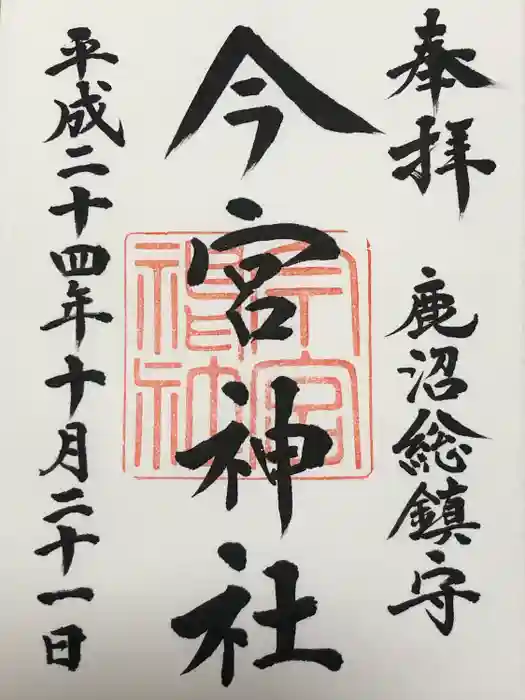 奉拝　鹿沼総鎮守
今宮神社
平成二十四年十月二十一日
今宮
神社